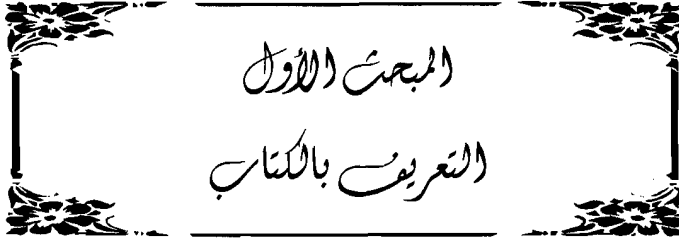 المبحث الأول
التعريف بالكتاب